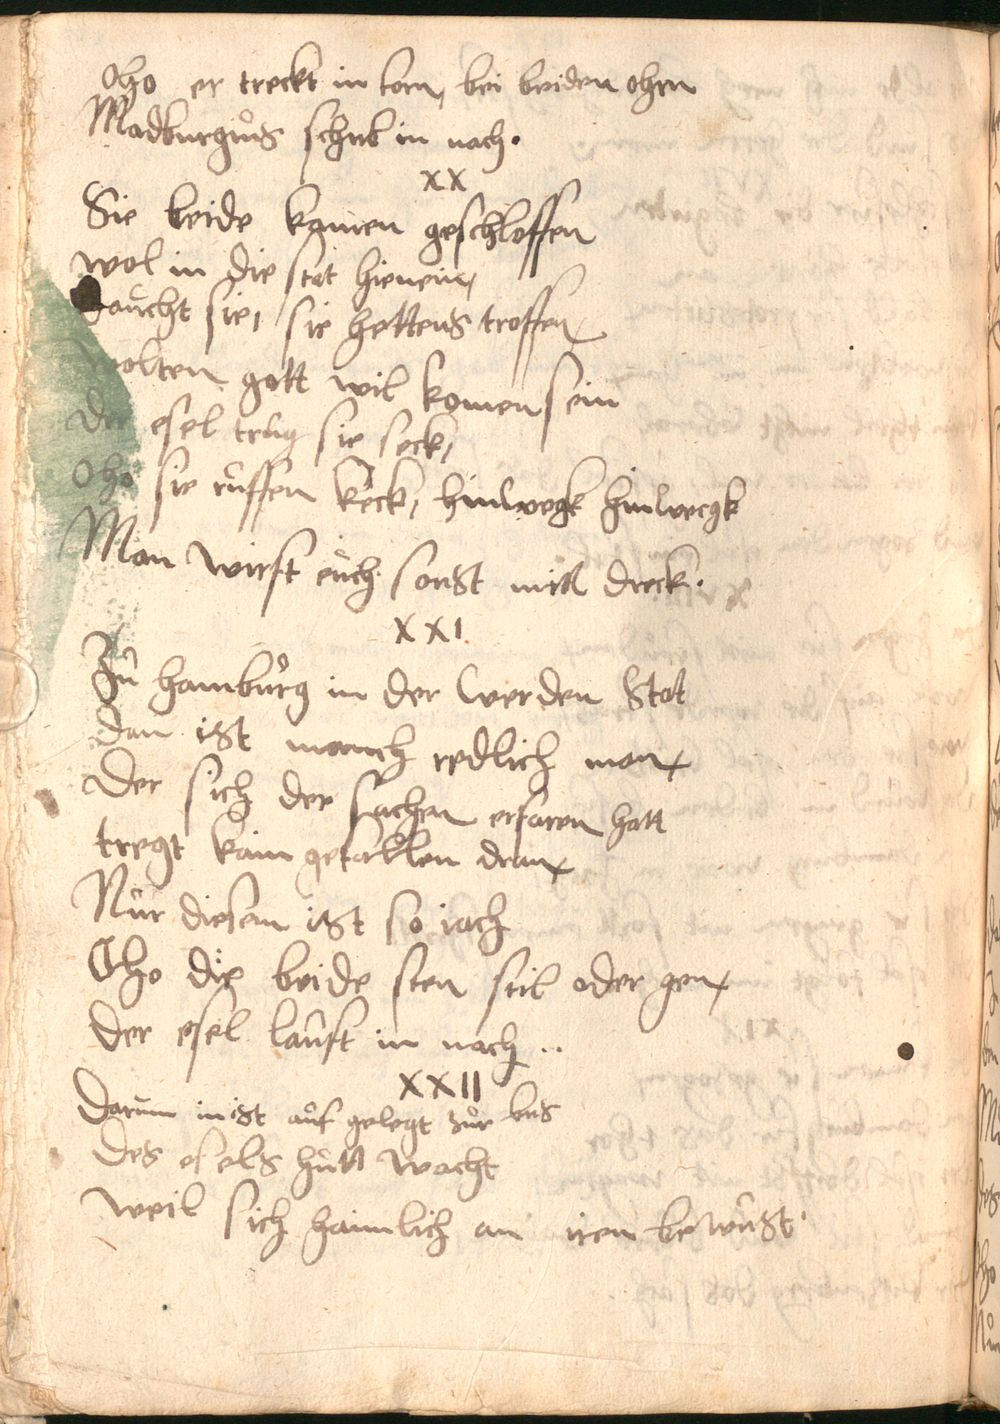 Oho er treckt in torn, bei beiden ohrn
Madburgius schreb in nach.
XX
Sie beide kamen geschloffen
wol in die stat hienein,
Daucht sie, sie hettens troffen
wolten gott wil komen sein
Der esel trug sie seck,
Oho sie ruffen keck, hinwegk hinwecgk
Man wirft euch sonst mitt dreck.
XXI
Zu hamburg in der werden Stat
Dan ist manch redlich man
Der sich der sachen erfaren hatt
tregt kain gefallen dran
Nur diesem ist so iach
Oho die beide sten stil oder gen
Der esel lauft in nach ..
XXII
Darum inist auf gelegt zur bus
Des esels hutt wacht
weil sich haimlich an iren bewust.